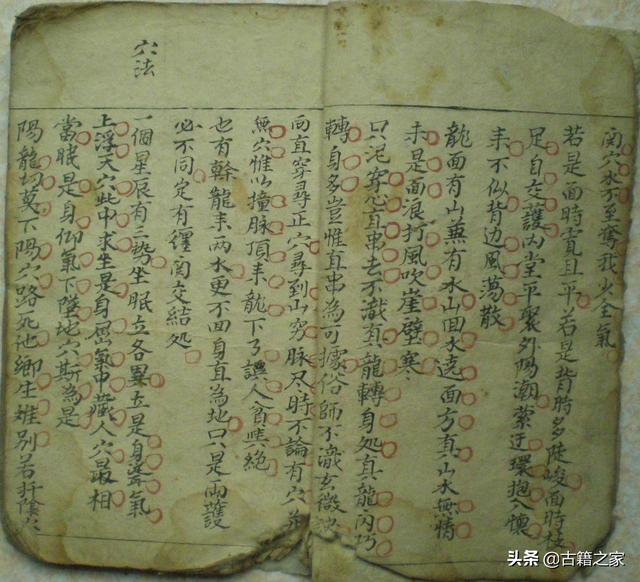 向穴水不至奪我火全氣
若是面時寬且平若是背時多陡峻面時
足自左護內堂平聚外陽潮縈迂環抱入懷
來不似背边風蕩散
龍面有山兼有水山回水遶面方真山水無情
未是面浪打風吹崖壁寒
只泥穿心直串去不識真龍轉身处真龍內巧
轉身多豈惟直串為可據俗師不識玄微
向直穿尋正穴尋到山穷脉尽時不論有穴
無穴惟以撞脉頂來龍下了讓人貧
絕
也有幹龍來両水更不回身直為地口只是両護
必不同定有纏関交結処
穴法
一個星辰有三勢坐眠立各異立是身聳氣
上浮天穴此中求坐是身屈氣中藏人穴最相
當眠是身仰氣下墜地穴斯為是
陽龍切莫下陽穴路死他鄉生
別若扦陰穴
头条@古籍之家